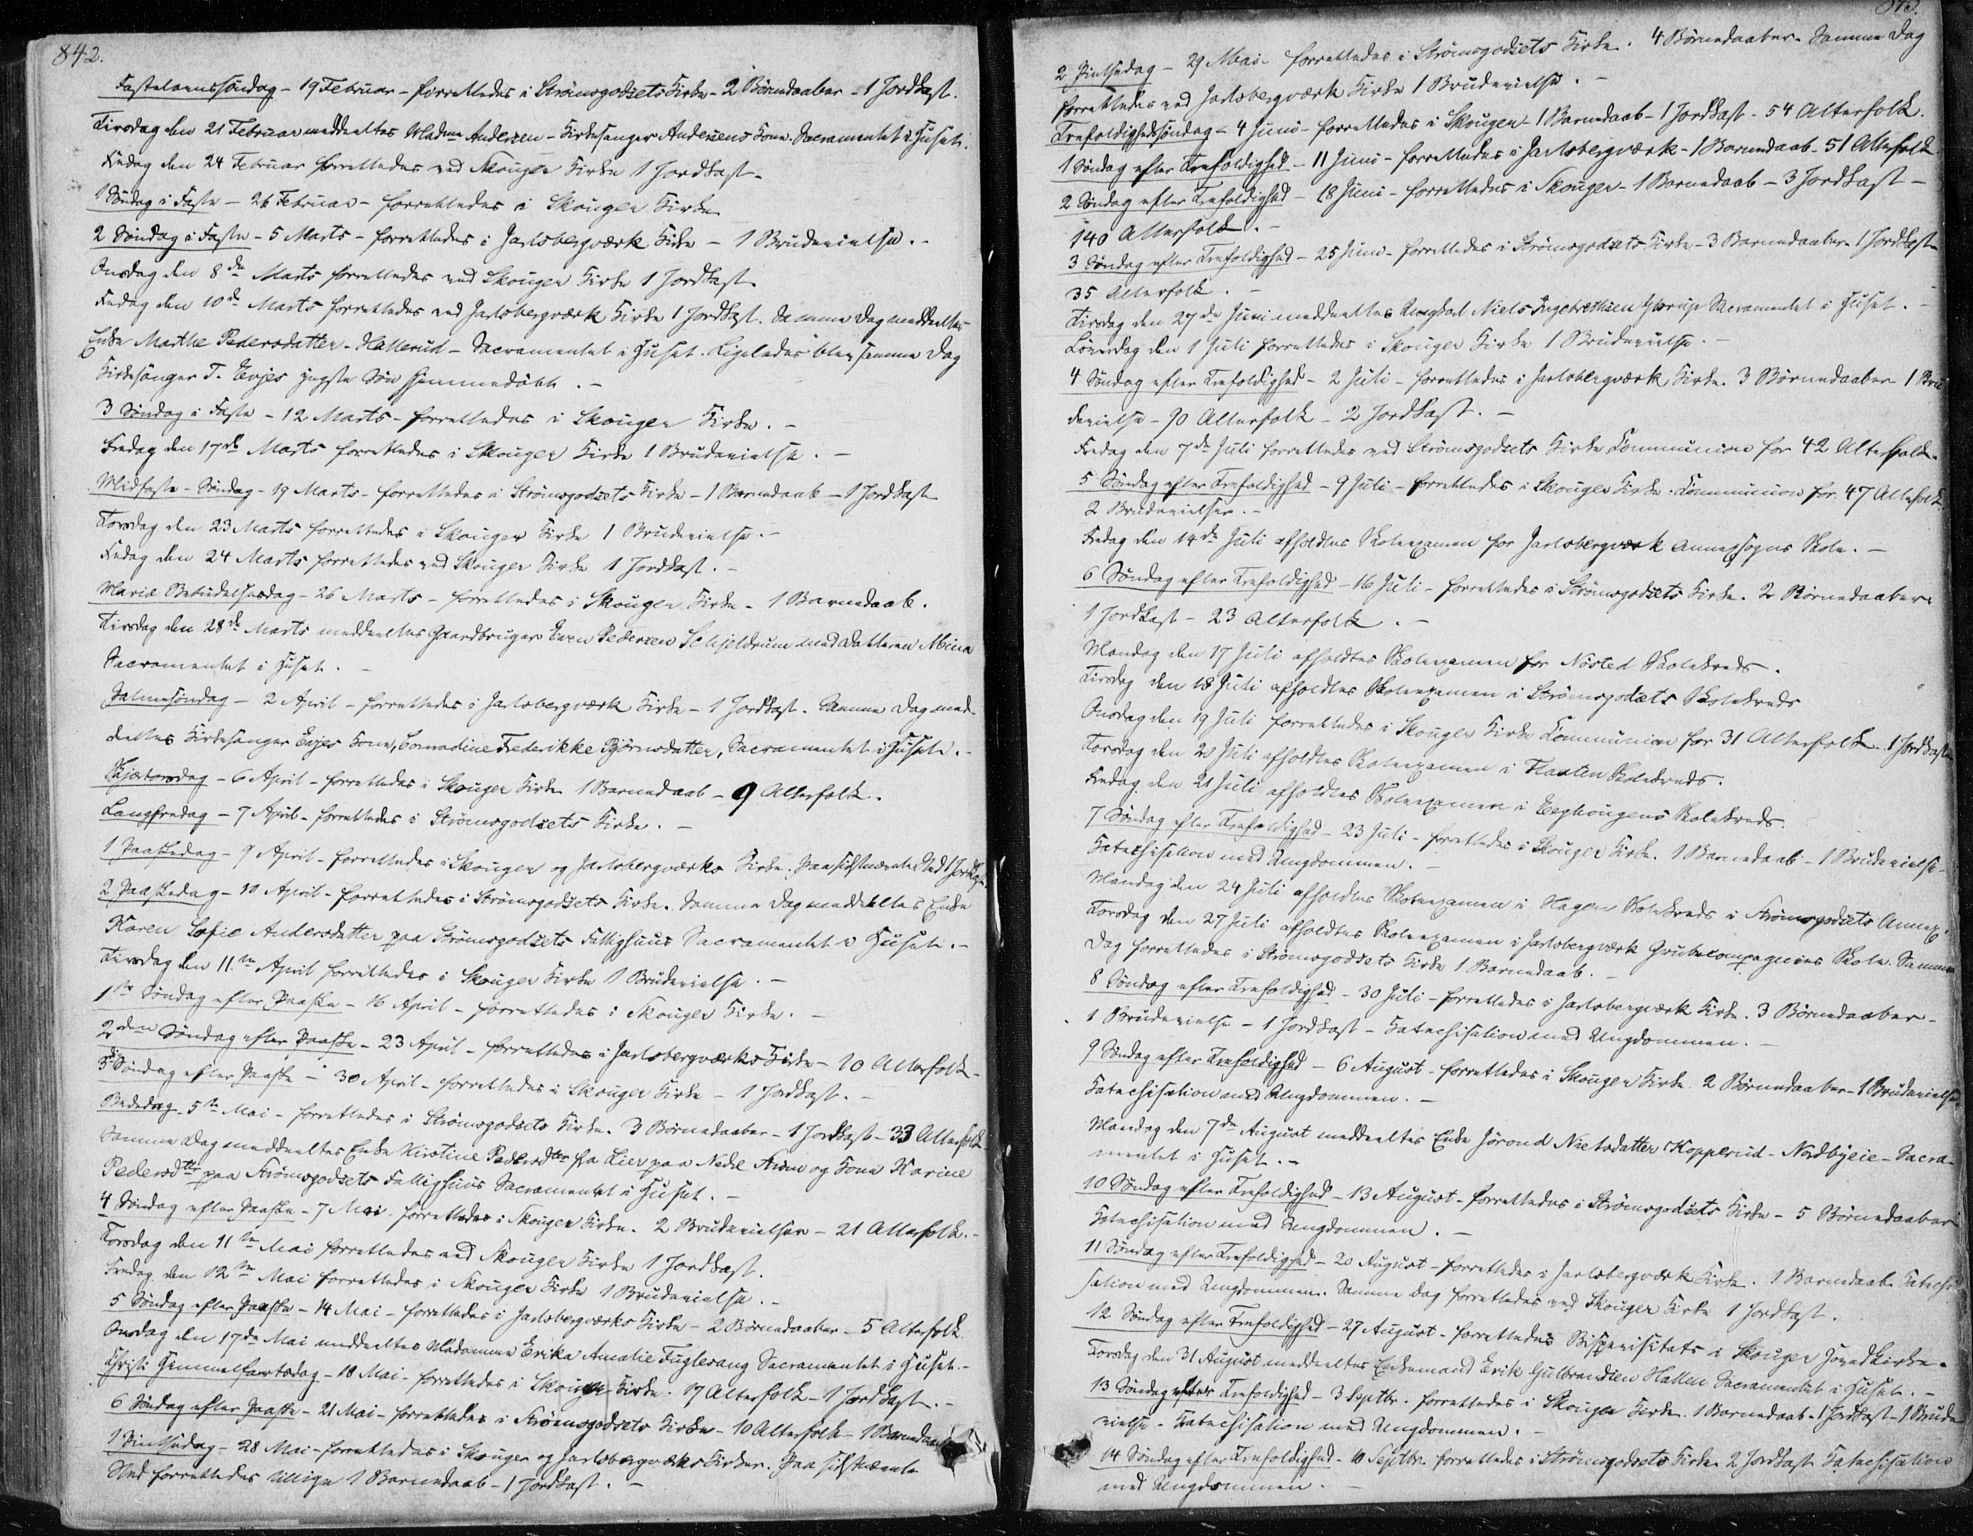 842.
Fastelavnssöndag - 19 Februar - forrettedes i Strömsgodsets Kirke - 2 Börnedaaber - 1 Jordkast.
Tirsdag den 21 Februar meddeeltes Madme Andersen - Kirkesanger Andersens Kone Sacramentet i Huset.
Fredag den 24 Februar forrettedes ved Skouger Kirke 1 Jordkast.
1 Söndag i Faste - 26 Februar - forrettedes i Skouger Kirke
2 Söndag i Faste - 5 Marts - forrettedes i Jarlsbergværk Kirke - 1 Brudevielse. -
Onsdag den 8de Marts forrettedes ved Skouger Kirke 1 Jordkast.
Fredag den 10de Marts forrettedes ved Jarlsbergværk Kirke 1 Jordkast. Samme Dag meddeeltes
Enke Marthe Pedersdatter - Hallerud - Sacramentet i Huset. Ligeledes blev samme Dag
Kirkesanger T. Evjes yngste Sön hjemmedöbt. -
3 Söndag i Faste - 12 Marts - forrettedes i Skouger Kirke. -
Fredag den 17de Marts forrettedes i Skouger Kirke 1 Brudevielse. -
Midfaste - Söndag - 19 Marts - forrettedes i Strömsgodsets Kirke - 1 Barnedaab - 1 Jordkast
Torsdag den 23 Marts forrettedes i Skouger Kirke 1 Brudevielse. -
Fredag den 24 Marts forrettedes ved Skouger Kirke 1 Jordkast. -
Mariæ Bebudelsesdag - 26 Marts - forrettedes i Skouger Kirke - 1 Barnedaab.
Tirsdag den 28de Marts meddeeltes Gaardbruger Even Pedersen Schjeldrum med Datteren Mina
Sacramentet i Huset. -
Palmesöndag - 2 April - forrettedes i Jarlsbergværk Kirke - 1 Jordkast. Samme Dag med-
deeltes Kirkesanger Evjes Kone, Conradine Frederikke Björnsdatter, Sacramentet i Huset. -
Skjærtorsdag - 6 April - forrettedes i Skouger Kirke 1 Barnedaab - 9 Alterfolk.
Langfredag - 7 April - forrettedes i Strömsgodsets Kirke. -
1 Paaskedag - 9 April - forrettedes i Skouger og Jarlsbergværks Kirke. Paa sidstnævnte Sted 1 Jordkast.
2 Paaskedag - 10 April - forrettedes i Strömsgodsets Kirke. Samme Dag meddeeltes Enke
Karen Sofie Andersdatter paa Strömsgodsets Fattighuus Sacramentet i Huset. -
Tirsdag den 11te April forrettedes i Skouger Kirke 1 Brudevielse. -
1ste Söndag efter Paaske - 16 April - forrettedes i Skouger Kirke. -
2den Söndag efter Paaske - 23 April - forrettedes i Jarlsbergværks Kirke - 10 Alterfolk -
3die Söndag efter Paaske - 30 April - forrettedes i Skouger Kirke - 1 Jordkast. -
Bededag - 5te Mai - forrettedes i Strömsgodsets Kirke. 3 Börnedaaber - 1 Jordkast - 33 Alterfolk
Samme Dag meddeeltes Enke Kirstine Pedersdtter fra Lier paa Nedre Aren og Kone Karine
Pedersdtter paa Strömsgodsets Fattighuus Sacramentet i Huset. -
4 Söndag efter Paaske - 7 Mai - forrettedes i Skouger Kirke. 2 Brudevielser - 21 Alterfolk. -
Torsdag den 11te Mai forrettedes ved Skouger Kirke 1 Jordkast.
Fredag den 12te Mai forrettedes i Skouger Kirke 1 Brudevielse. -
5 Söndag efter Paaske - 14 Mai - forrettedes i Jarlsbergværks Kirke - 2 Börnedaaber - 5 Alterfolk.
Onsdag den 17de Mai meddeeltes Madamme Erika Amalie Fuglesang Sacramentet i Huset. -
Christi Himmelfartsdag - 18 Mai - forrettedes i Skouger Kirke. 17 Alterfolk - 1 Jordkast. -
6 Söndag efter Paaske - 21 Mai - forrettedes i Strömsgodsets Kirke - 10 Alterfolk - 1 Barnedaab
1 Pintsedag - 28 Mai - forrettedes i Skouger og Jarlsbergværks Kirker. Paa sidstnævnte
Sted forrettedes tillige 1 Barnedaab - 1 Jordkast. -
843.
2 Pintsedag - 29 Mai - forrettedes i Strömsgodsets Kirke. 4 Börnedaaber. Samme Dag
forrettedes ved Jarlsbergværk Kirke 1 Brudevielse. -
Trefoldighedssöndag - 4 Juni - forrettedes i Skouger - 1 Barnedaab - 1 Jordkast - 54 Alterfolk.
1 Söndag efter Trefoldighed - 11 Juni - forrettedes i Jarlsbergværk - 1 Barnedaab - 51 Alterfolk
2 Söndag efter Trefoldighed - 18 Juni - forrettedes i Skouger - 1 Barnedaab - 3 Jordkast -
140 Alterfolk. -
3 Söndag efter Trefoldighed - 25 Juni - forrettedes i Strömsgodsets Kirke - 3 Barnedaaber - 1 Jordkast
35 Alterfolk. -
Tirsdag den 27de Juni meddeeltes Ungkarl Niels Ingebretsen Gjörup Sacramentet i Huset. -
Löverdag den 1 Juli forrettedes i Skouger Kirke 1 Brudevielse. -
4 Söndag efter Trefoldighed - 2 Juli - forrettedes i Jarlsbergværk Kirke. 3 Börnedaaber 1 Bru
devielse - 90 Alterfolk - 2 Jordkast. -
Fredag den 7de Juli forrettedes ved Strömsgodsets Kirke Communion for 42 Alterfolk.
5 Söndag efter Trefoldighed - 9 Juli - forrettedes i Skouger Kirke. Communion for 47 Alterfolk
2 Brudevielser. -
Fredag den 14de Juli afholdtes Skoleexamen for Jarlsbergværk Annexsogns Skole. -
6 Söndag efter Trefoldighed - 16 Juli - forrettedes i Strömsgodsets Kirke. 2 Börnedaaber
1 Jordkast - 23 Alterfolk. -
Mandag den 17 Juli afholdtes Skoleexamen for Nösted Skolekreds.
Tirsdag den 18 Juli afholdtes Skoleexamen i Strömsgodsets Skolekreds
Onsdag den 19 Juli forrettedes i Skouger Kirke Communion for 31 Alterfolk - 1 Jordkast
Torsdag den 20 Juli afholdtes Skoleexamen i Skolekreds.
Fredag den 21 Juli afholdtes Skoleexamen i Eeghougens Skolekreds.
7 Söndag efter Trefoldighed - 23 Juli - forrettedes i Skouger Kirke. 1 Barnedaab - 1 Brudevielse -
Katechisation med Ungdommen. -
Mandag den 24 Juli afholdtes Skoleexamen i Hagen Skolekreds i Strömsgodsets Annex.
Torsdag den 27 Juli afholdtes Skoleexamen i Jarlsbergværk Grubecompagniens Skole. Samme
Dag forrettedes i Strömsgodsets Kirke 1 Barnedaab. -
8 Söndag efter Trefoldighed - 30 Juli - forrettedes i Jarlsbergværk Kirke. 3 Börnedaaber -
1 Brudevielse - 1 Jordkast - Katechisation med Ungdommen. -
9 Söndag efter Trefoldighed - 6 August - forrettedes i Skouger Kirke. 2 Börnedaaber - 1 Brudevielse
Katechisation med Ungdommen. -
Mandag den 7de August meddeeltes Enke Jörond Nielsdatter Kopperud - Nordbyeie - Sacra-
mentet i Huset. -
10 Söndag efter Trefoldighed - 13 August - forrettedes i Strömsgodsets Kirke - 5 Börnedaaber
Katechisation med Ungdommen. -
11 Söndag efter Trefoldighed - 20 August - forrettedes i Jarlsbergværk Kirke. 1 Barnedaab. Katechi
sation med Ungdommen. Samme Dag forrettedes ved Skouger Kirke 1 Jordkast.
12 Söndag efter Trefoldighed - 27 August - forrettedes Bispevisitats i Skouger Hovedkirke.
Torsdag den 31 August meddeeltes Enkemand Erik Gulbrandsen Hallen Sacramentet i Huset. -
13 Söndag efter Trefoldighed - 3 Septbr. forrettedes i Skouger Kirke. 1 Barnedaab - 1 Jordkast - 1 Brude
vielse - Katechisation med Ungdommen. -
14 Söndag efter Trefoldighed - 10 Septbr. forrettedes i Strömsgodsets Kirke 2 Jordkast Katechisation
med Ungdommen. -